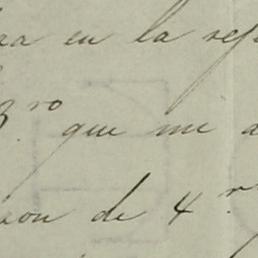 ra en la res
3.ro que me a
on de 4.r